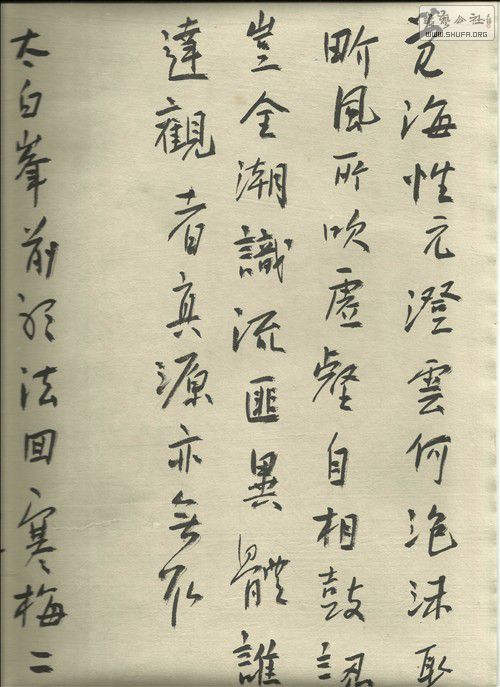 海性元澄雲何泡沫
畍風所吹虛壑自相鼓認
豈全潮識流匪異體誰
達觀者真源亦無
太白峯前法回寒梅二
書藝公社
WWW.SHUFA.ORG